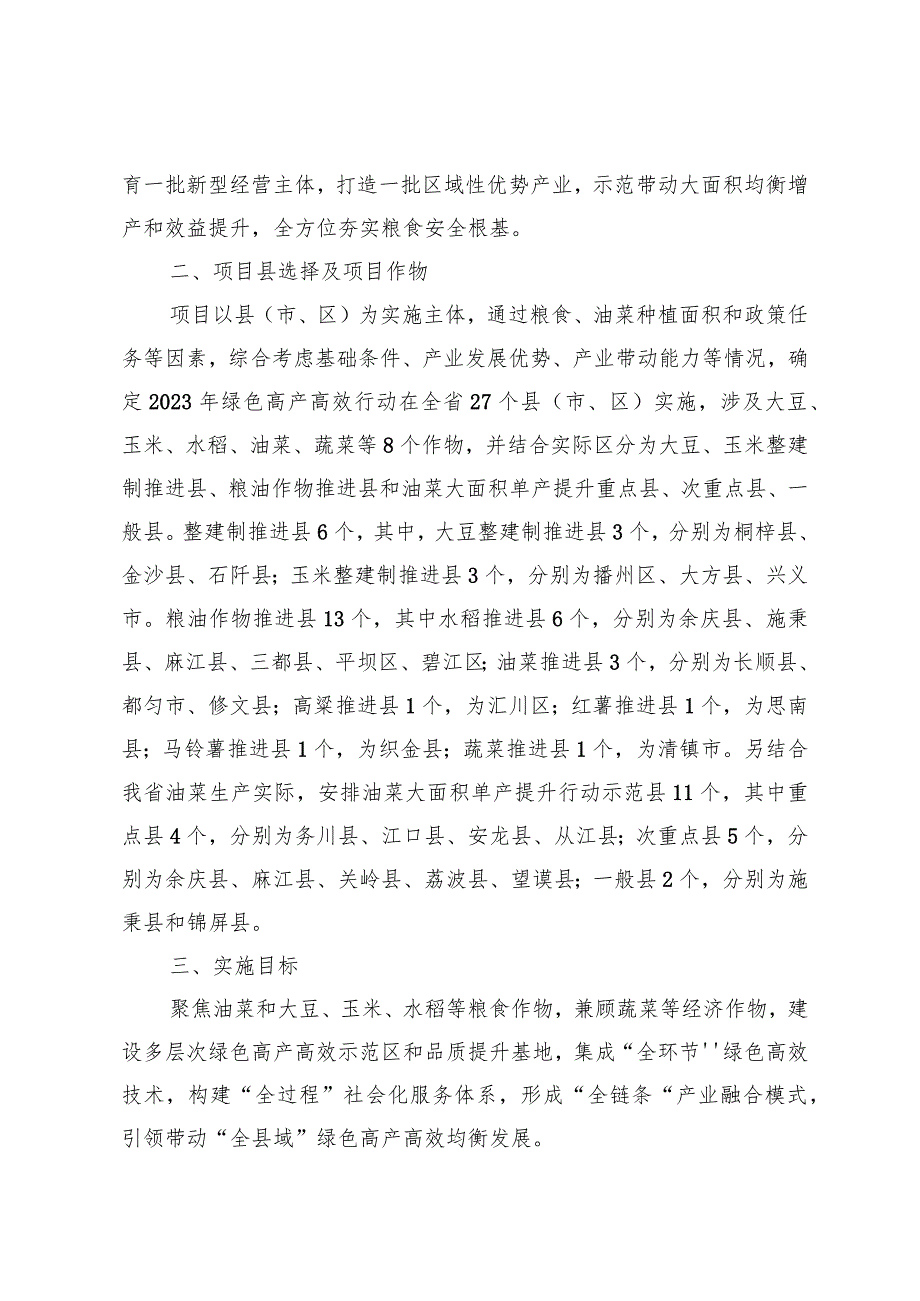 育一批新型经营主体，打造一批区域性优势产业，示范带动大面积均衡增
产和效益提升，全方位夯实粮食安全根基。
二、项目县选择及项目作物
项目以县（市、区）为实施主体，通过粮食、油菜种植面积和政策任
务等因素，综合考虑基础条件、产业发展优势、产业带动能力等情况，确
定2023年绿色高产高效行动在全省27个县（市、区）实施，涉及大豆、
玉米、水稻、油菜、蔬菜等8个作物，并结合实际区分为大豆、玉米整建
制推进县、粮油作物推进县和油菜大面积单产提升重点县、次重点县、一
般县。整建制推进县6个，其中，大豆整建制推进县3个，分别为桐梓县、
金沙县、石阡县；玉米整建制推进县3个，分别为播州区、大方县、兴义
市。粮油作物推进县13个，其中水稻推进县6个，分别为余庆县、施秉
县、麻江县、三都县、平坝区、碧江区；油菜推进县3个，分别为长顺县、
都匀市、修文县；高粱推进县1个，为汇川区；红薯推进县1个，为思南
县；马铃薯推进县1个，为织金县；蔬菜推进县1个，为清镇市。另结合
我省油菜生产实际，安排油菜大面积单产提升行动示范县11个，其中重
点县4个，分别为务川县、江口县、安龙县、从江县；次重点县5个，分
别为余庆县、麻江县、关岭县、荔波县、望谟县；一般县2个，分别为施
秉县和锦屏县。
三、实施目标
聚焦油菜和大豆、玉米、水稻等粮食作物，兼顾蔬菜等经济作物，建
设多层次绿色高产高效示范区和品质提升基地，集成“全环节''绿色高效
技术，构建“全过程”社会化服务体系，形成“全链条“产业融合模式，
引领带动“全县域”绿色高产高效均衡发展。